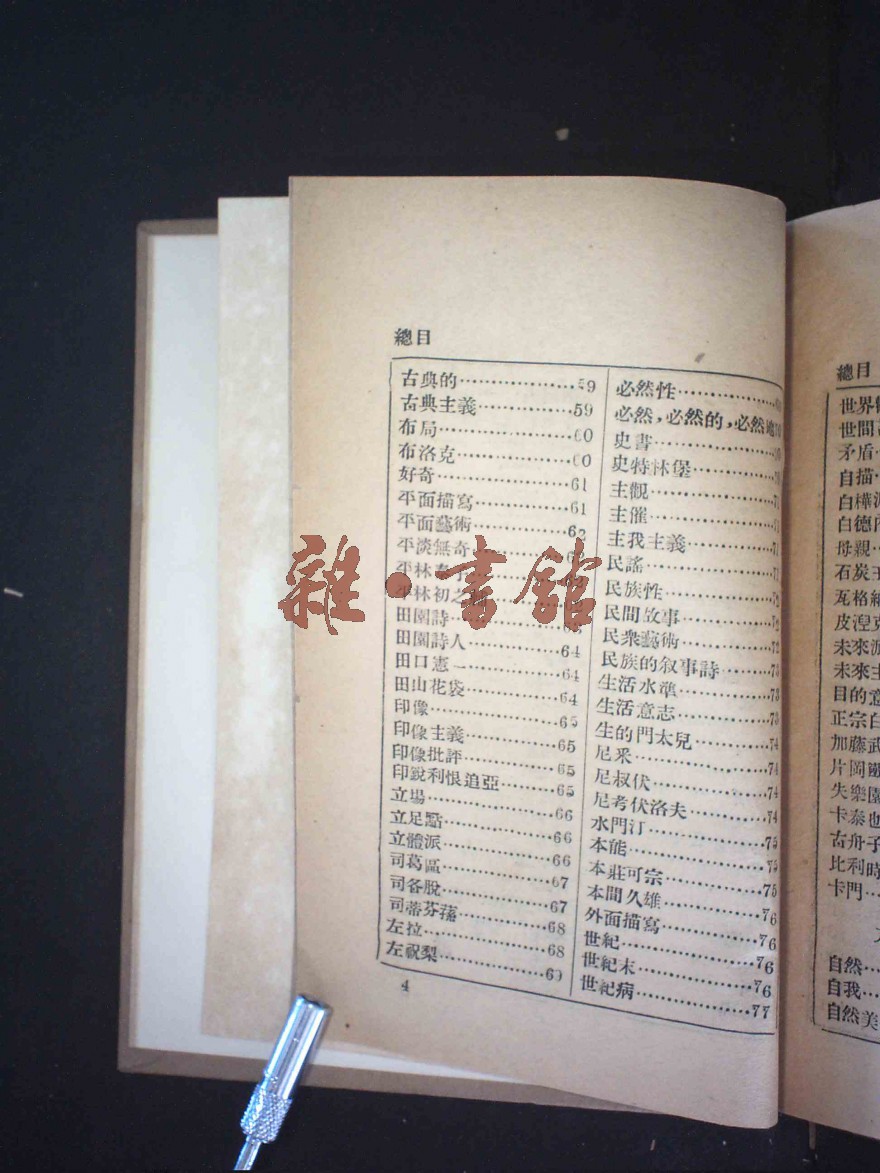 總目
古典的…………59
古典主義…………59
布局…………60
布洛克…………60
好奇…………61
平面描寫…………61
平面藝術…………62
平淡無奇…………
平林
平林初之
田園詩…………63
田園詩人…………64
田口憲一…………64
田山花袋…………64
印像…………65
印像主義…………65
印像批評…………65
印銳利恨追亞…………65
立場…………66
立足點…………66
立體派…………66
司葛區…………67
司各脫…………67
司蒂芬蓀…………68
左拉…………68
左祝梨…………69
必然性…………
必然，必然的，必然地
史書…………
史特林堡…………
主觀…………71
主催…………71
主我主義…………71
民謠…………71
民族性…………72
民間故事…………72
民衆藝術…………72
民族的叙事詩…………73
生活水準…………73
生活意志…………73
生的門太兒…………74
尼采…………74
尼叔伏…………74
尼考伏洛夫…………74
水門汀…………75
本能…………75
本莊可宗…………75
本間久雄…………76
外面描寫…………76
世紀…………76
世紀末…………76
世紀病…………77
4
雜·書館
總目
世界
世間
矛盾…
自描…
白樺派
白德內
母親…
石炭王
瓦格納
皮涅克
未來派
未來主
目的意
正宗白
加藤武
片岡鐵
失樂園
卡泰也
古舟子
比利時
卡門…
自然…
自我…
自然美